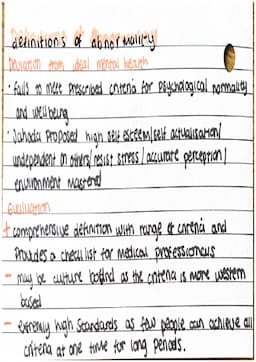 definitions of abnormality
Deviation from ideal mental health
• Fails to meet prescribed criteria for psychological normality
and well being
• Jahoda proposed high self esteem/self actualisation/
independent on others/resist stress/accurate perception/
environment mastered
Evaluation
+ comprehensive definition with range of criteria and
provides a checklist for medical professionals
- may be culture bound as the criteria is more western
based
- extremely high standards as few people can achieve all
criteria at one time for long periods.